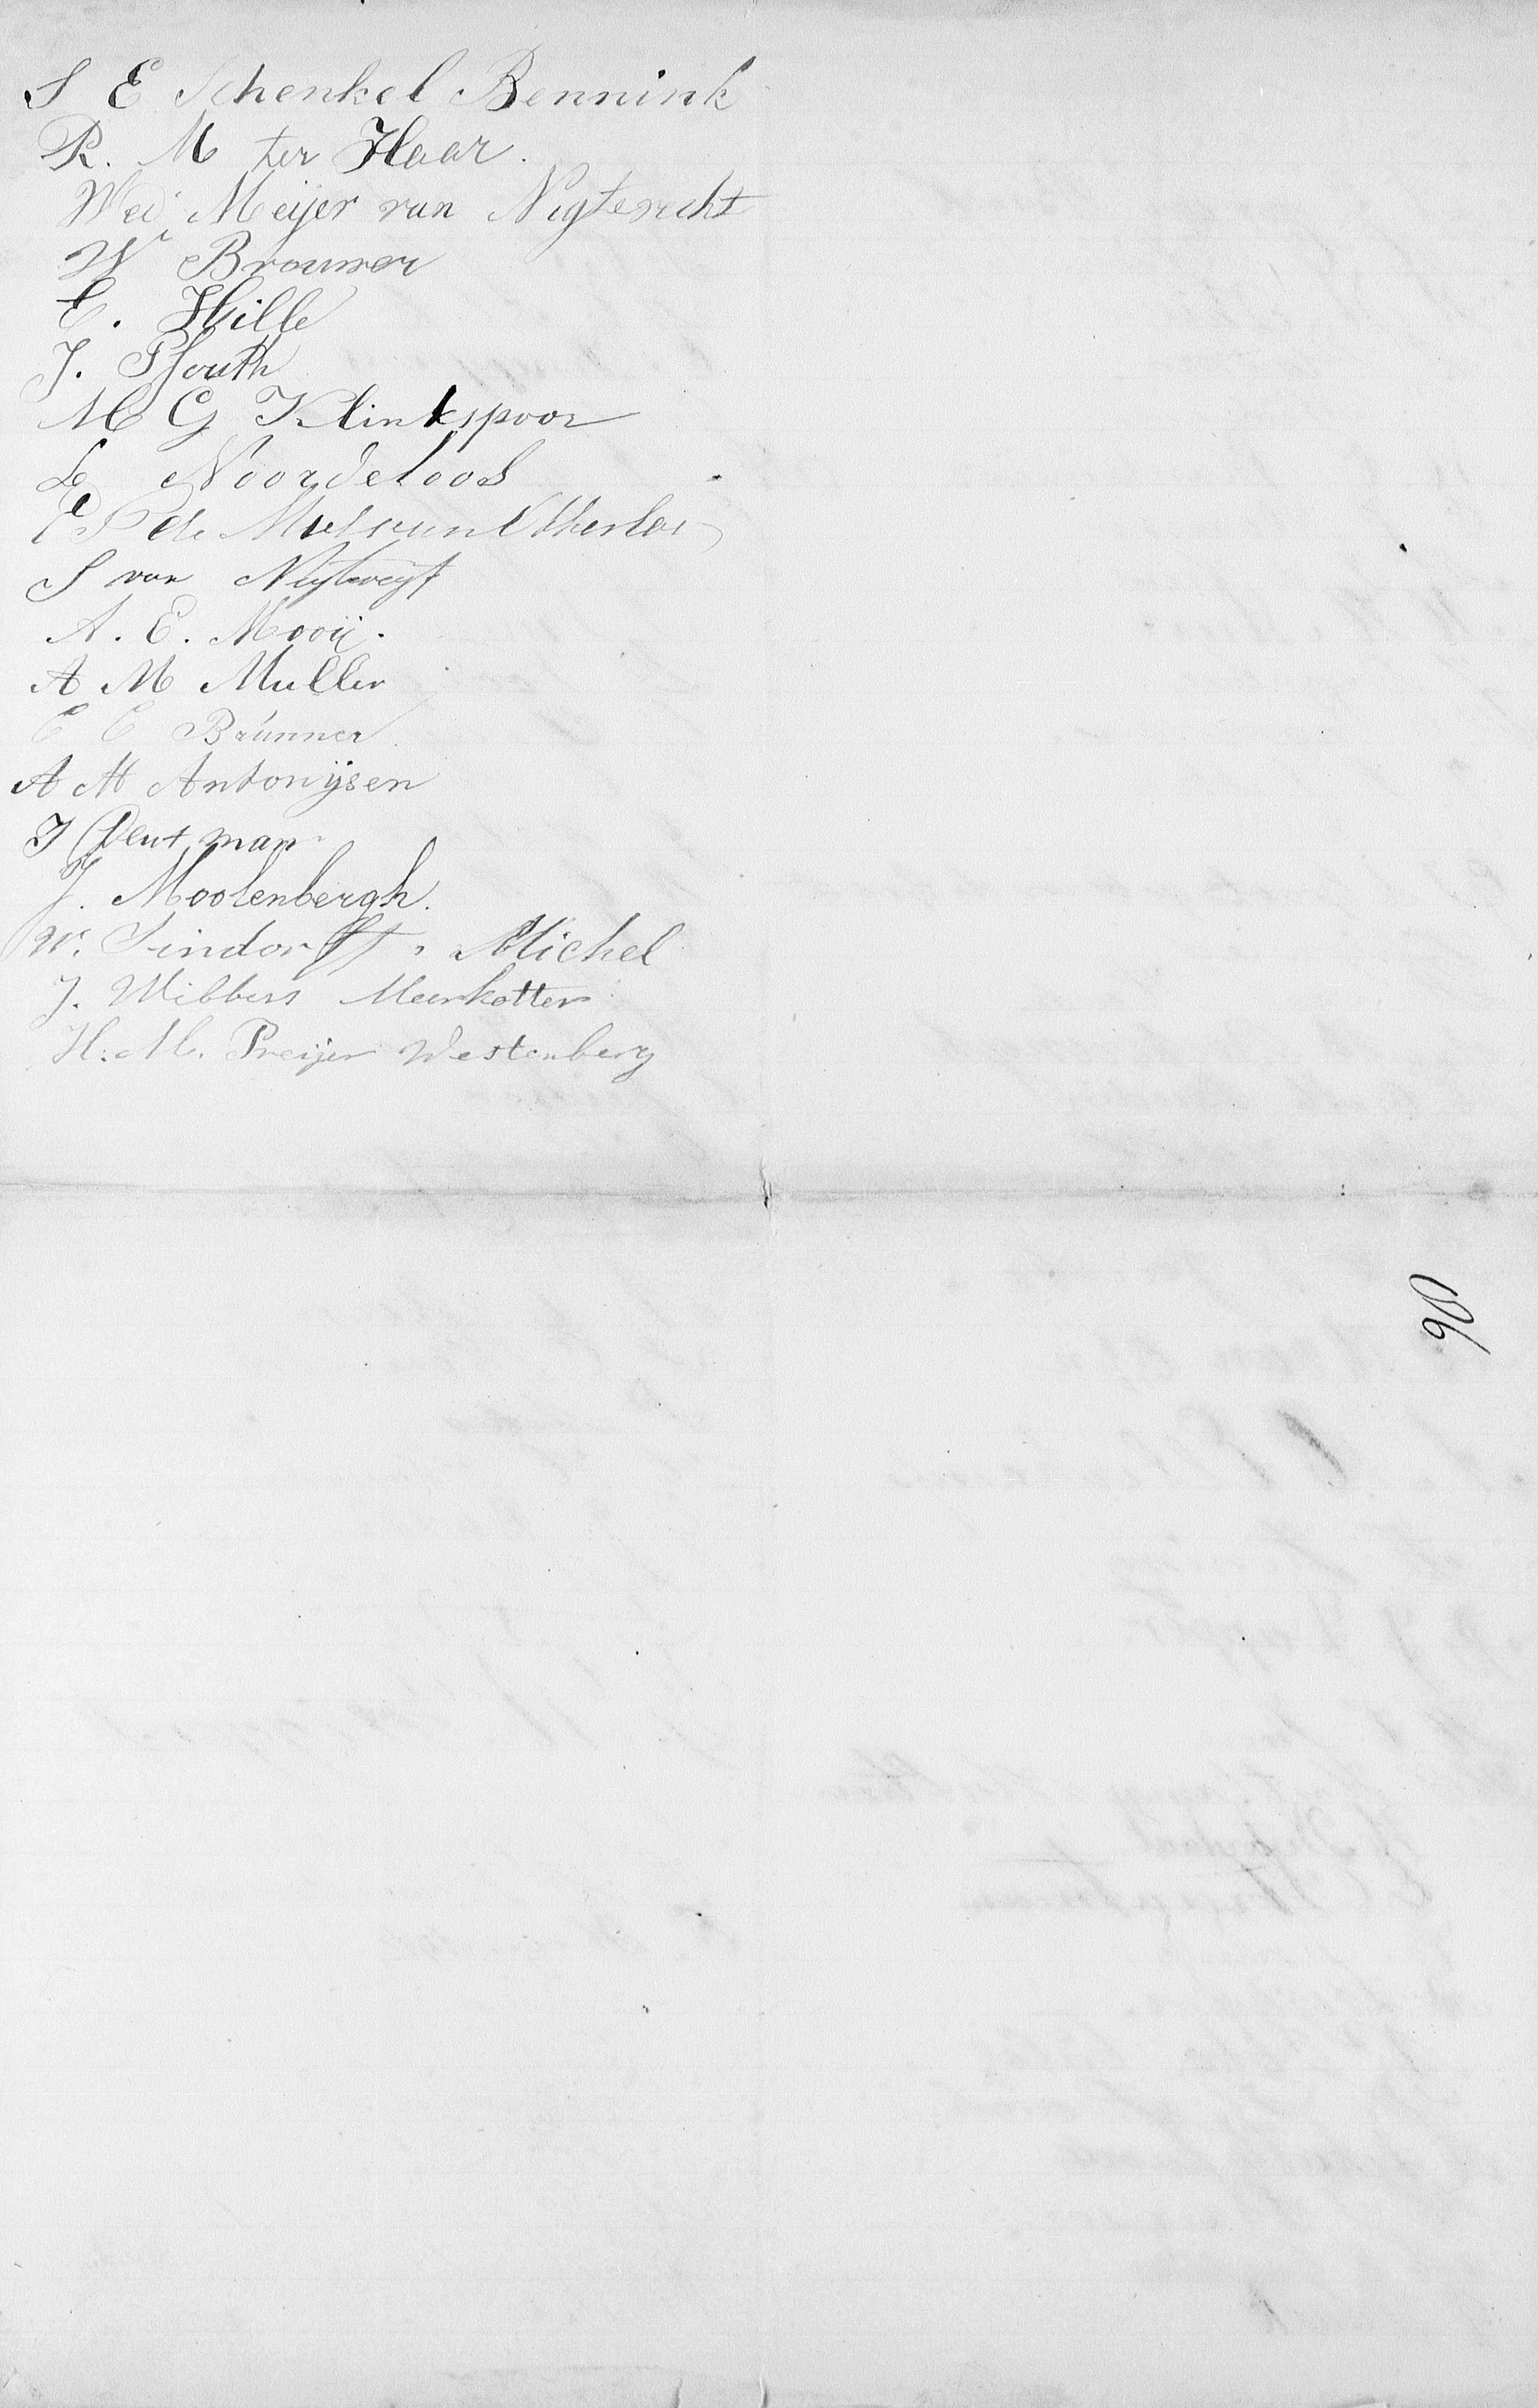 S E Schenkel Bennink
R. M ter Haar.
Wed Meijer van Nigtevecht
W Brouwer
E. Hille
J. Pfouth
M G Klinkspoor
L Noordeloos
de
S van
A. E. Mooij.
A M Muller
C C Brunner
A M Antonijsen
J Dentman
J. Moolenbergh.
W. Sindorff, Michel
J. Wibbers Meerkotter
H. M. Preijer Westenberg